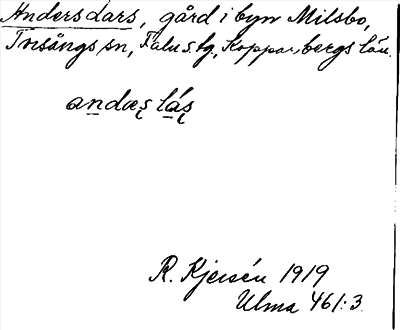 Andersdars, gård i byn Milsbo,
Tvsångs sn, Falu s. tg, Kopparbergs län.
andæs lás
R. Kjersén 1919
Ulma 461:3.